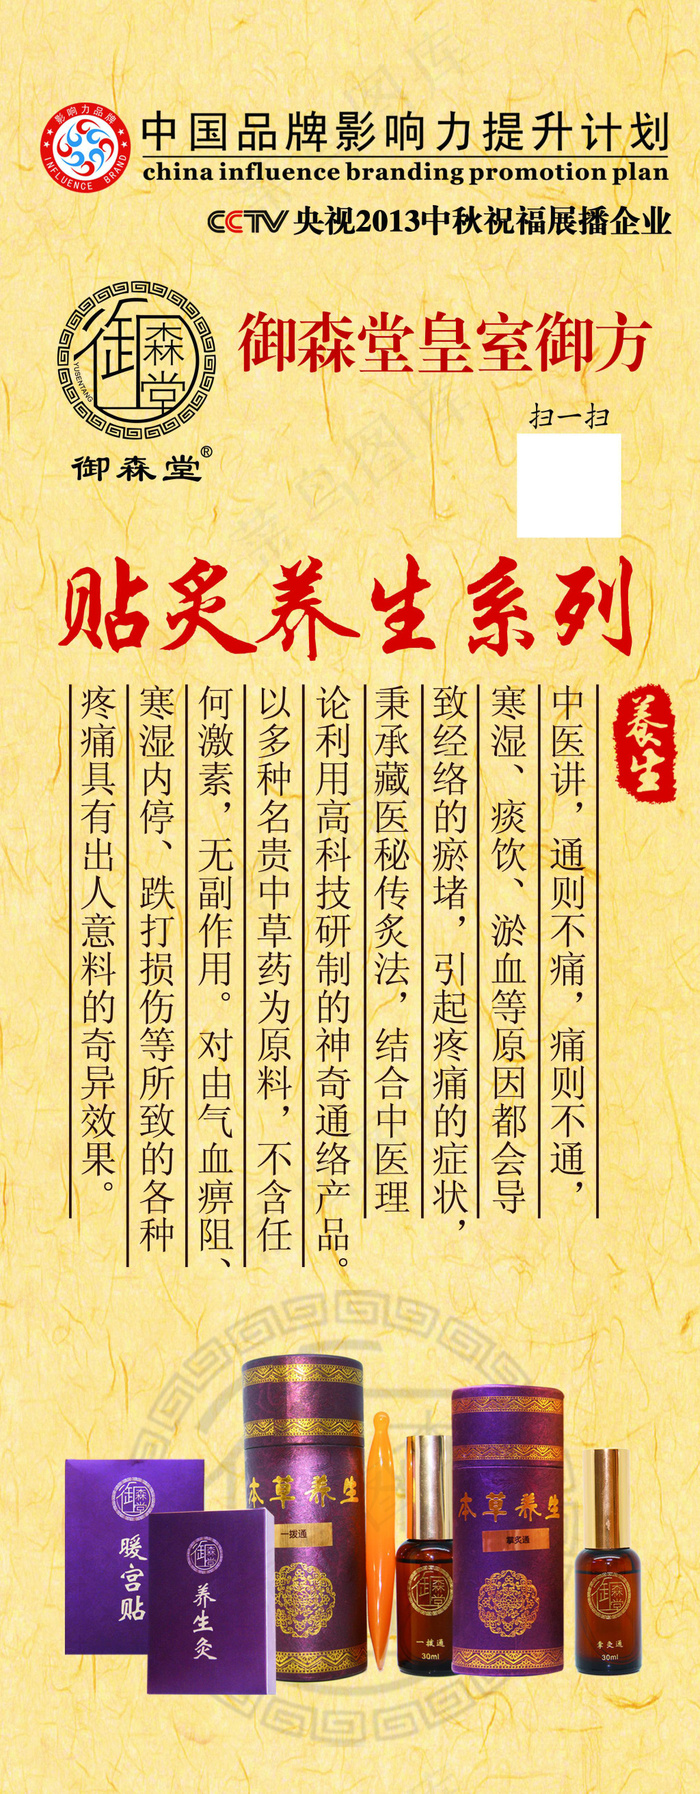 影响力品牌
INFLUENCE BRAND
中国品牌影响力提升计划
china influence branding promotion plan
CCTV 央视2013中秋祝福展播企业
御森堂
YUSENTANG
御森堂®
御森堂皇室御方
扫一扫
贴炙养生系列
养生
中医讲，通则不痛，痛则不通，
寒湿、痰饮、淤血等原因都会导
致经络的瘀堵，引起疼痛的症状，
秉承藏医秘传炙法，结合中医理
论利用高科技研制的神奇通络产品。
以多种名贵中草药为原料，不含任
何激素，无副作用。对由气血痹阻、
寒湿内停、跌打损伤等所致的各种
疼痛具有出人意料的奇异效果。
御森堂
暖宫贴
御森堂
养生灸
本草养生
一拨通
御森堂
一拨通
30ml
本草养生
掌炙通
御森堂
拿灸通
30ml